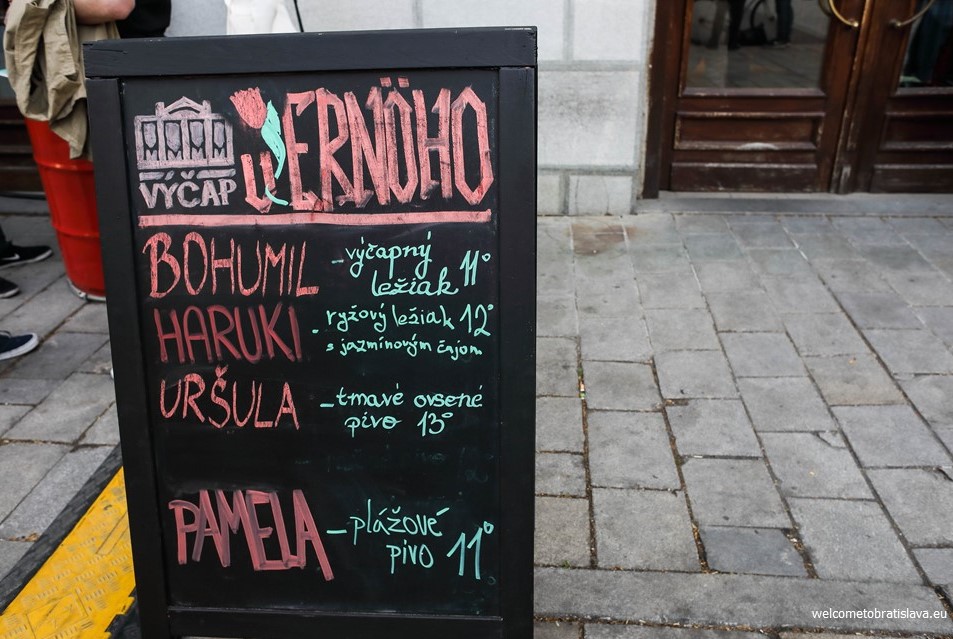 VÝČAP
uERNÖHO
BOHUMIL - výčapný
ležiak 11°
HARUKI - ryžový ležiak 12°
s jazmínovým čajom
URŠULA - tmavé ovsené
pivo 13°
PAMELA - plážové
pivo 11°
welcometobratislava.eu